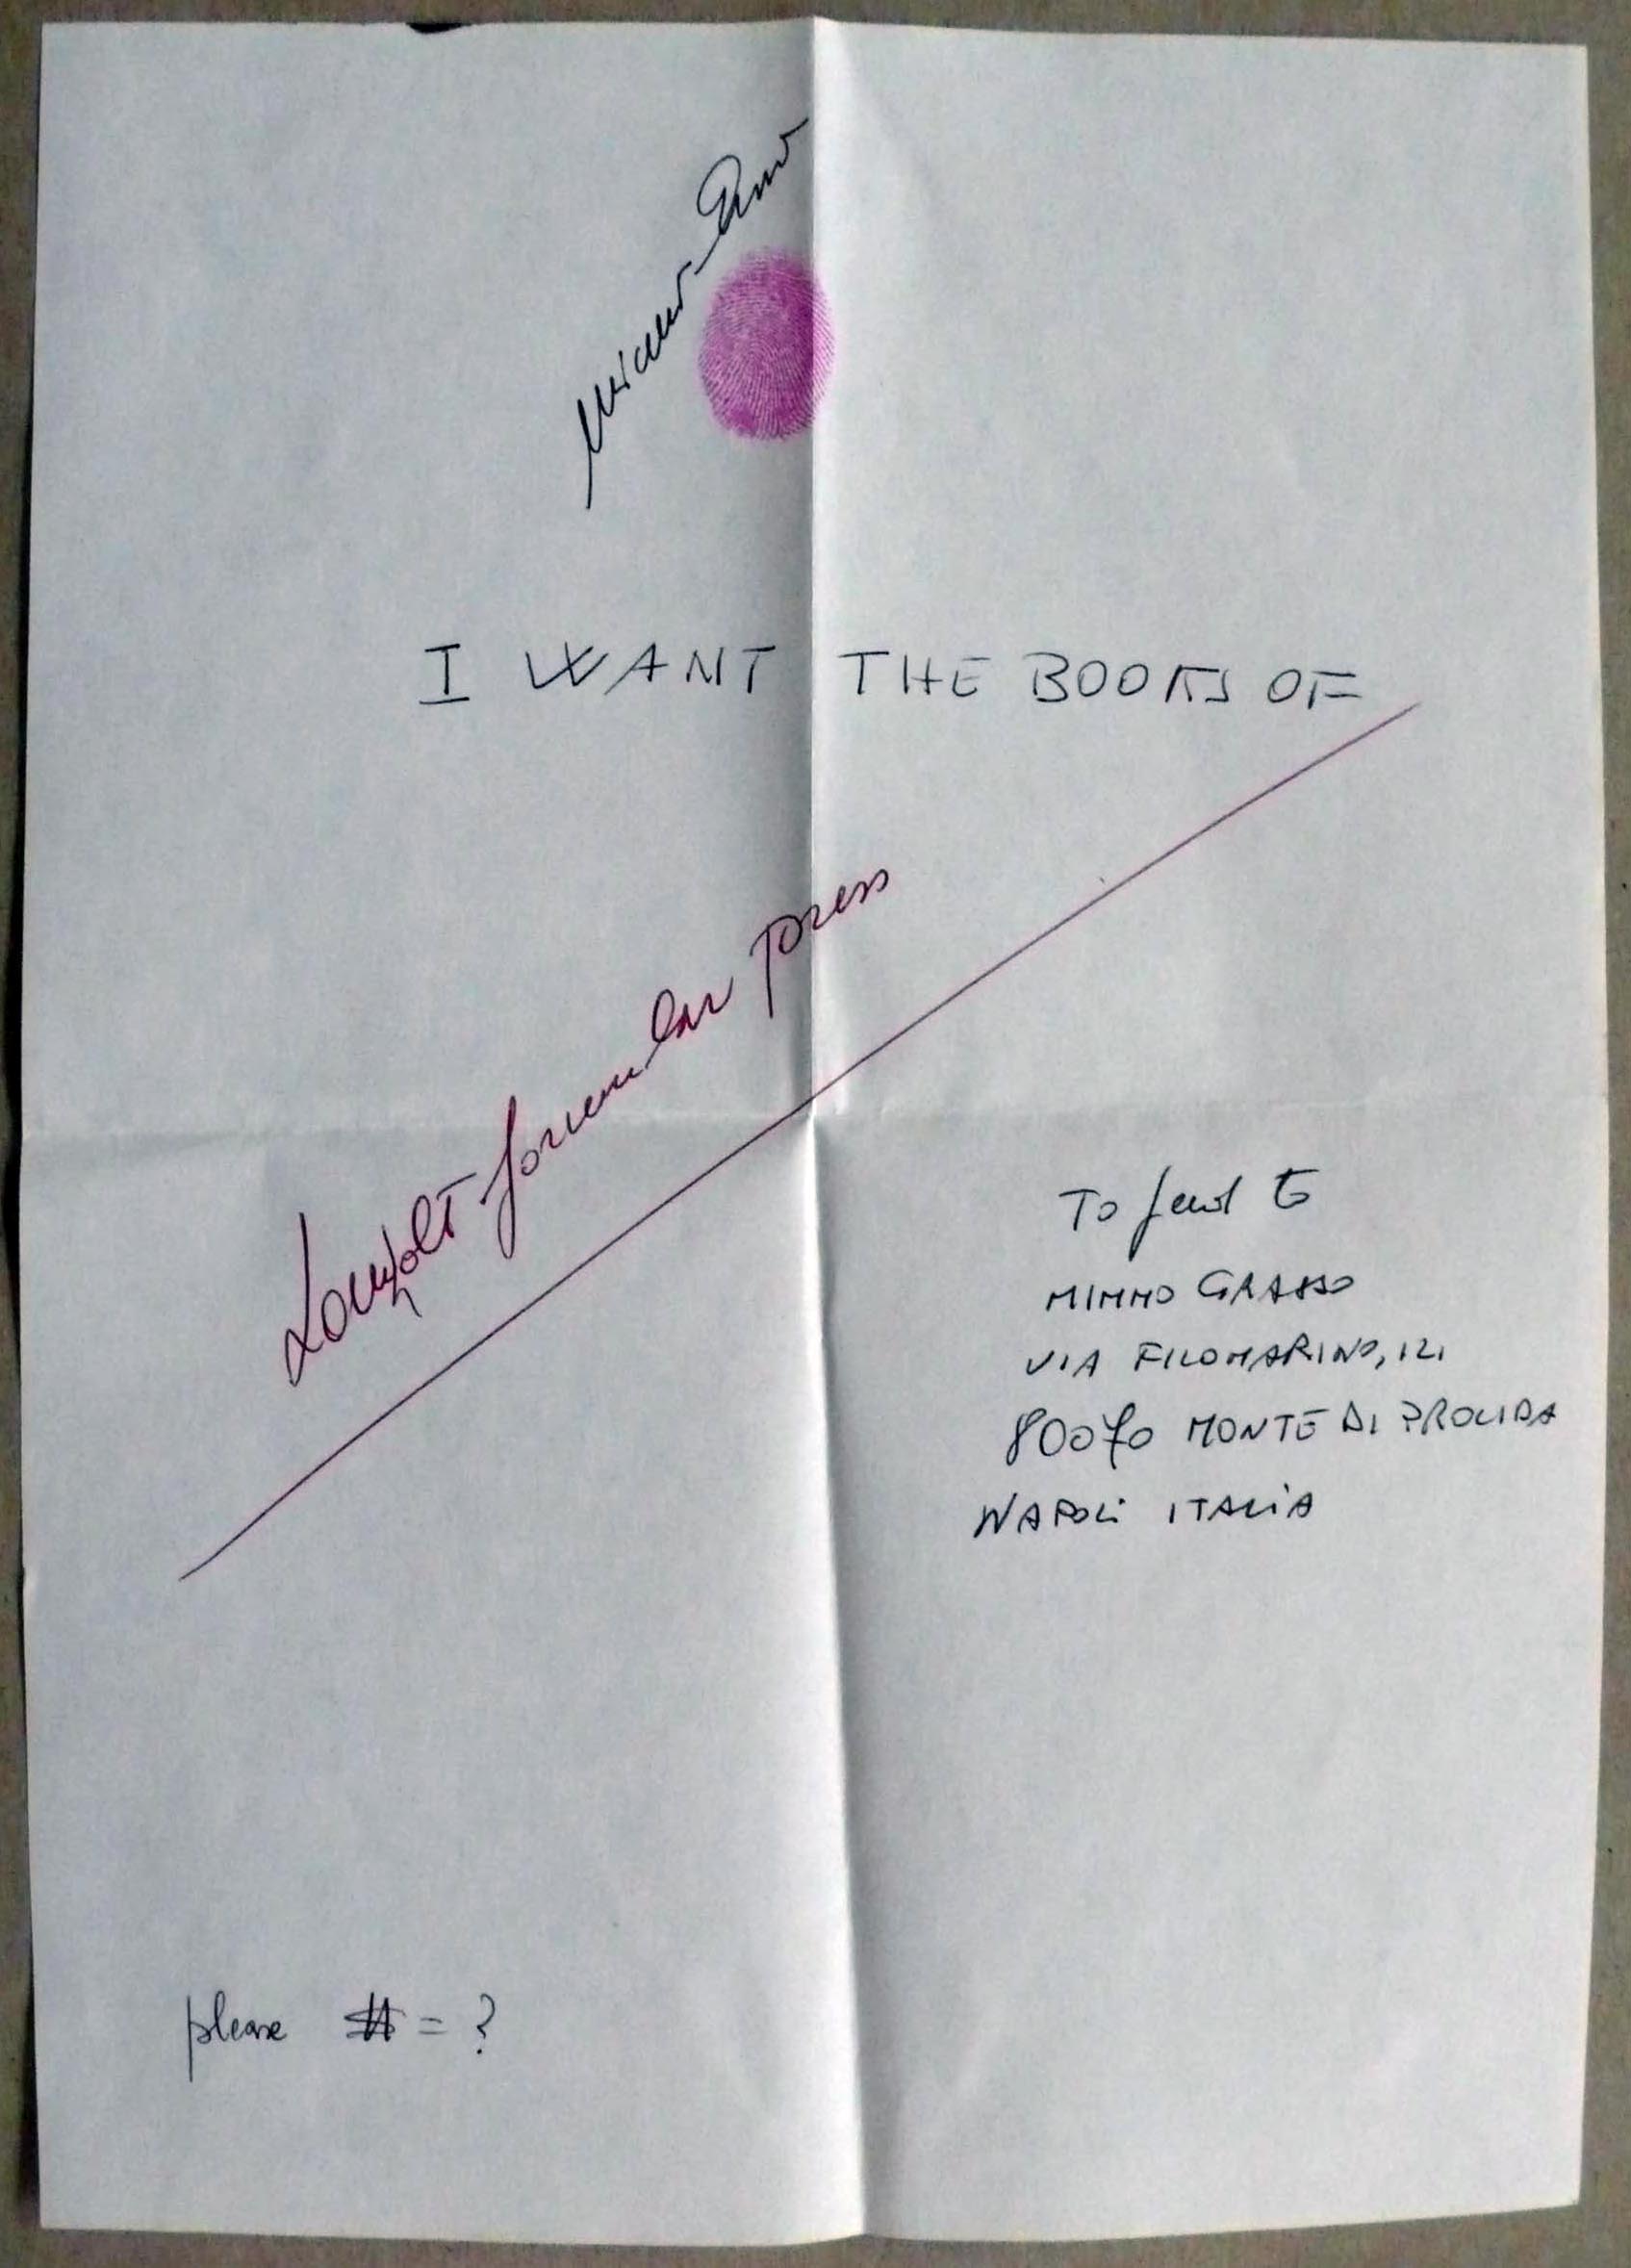 I WANT THE BOOKS OF
press
To send to
MIMMO GRASSO
VIA FILOMARINO, 121
80070 MONTE DI PROCIDA
NAPOLI ITALIA
please $ = ?